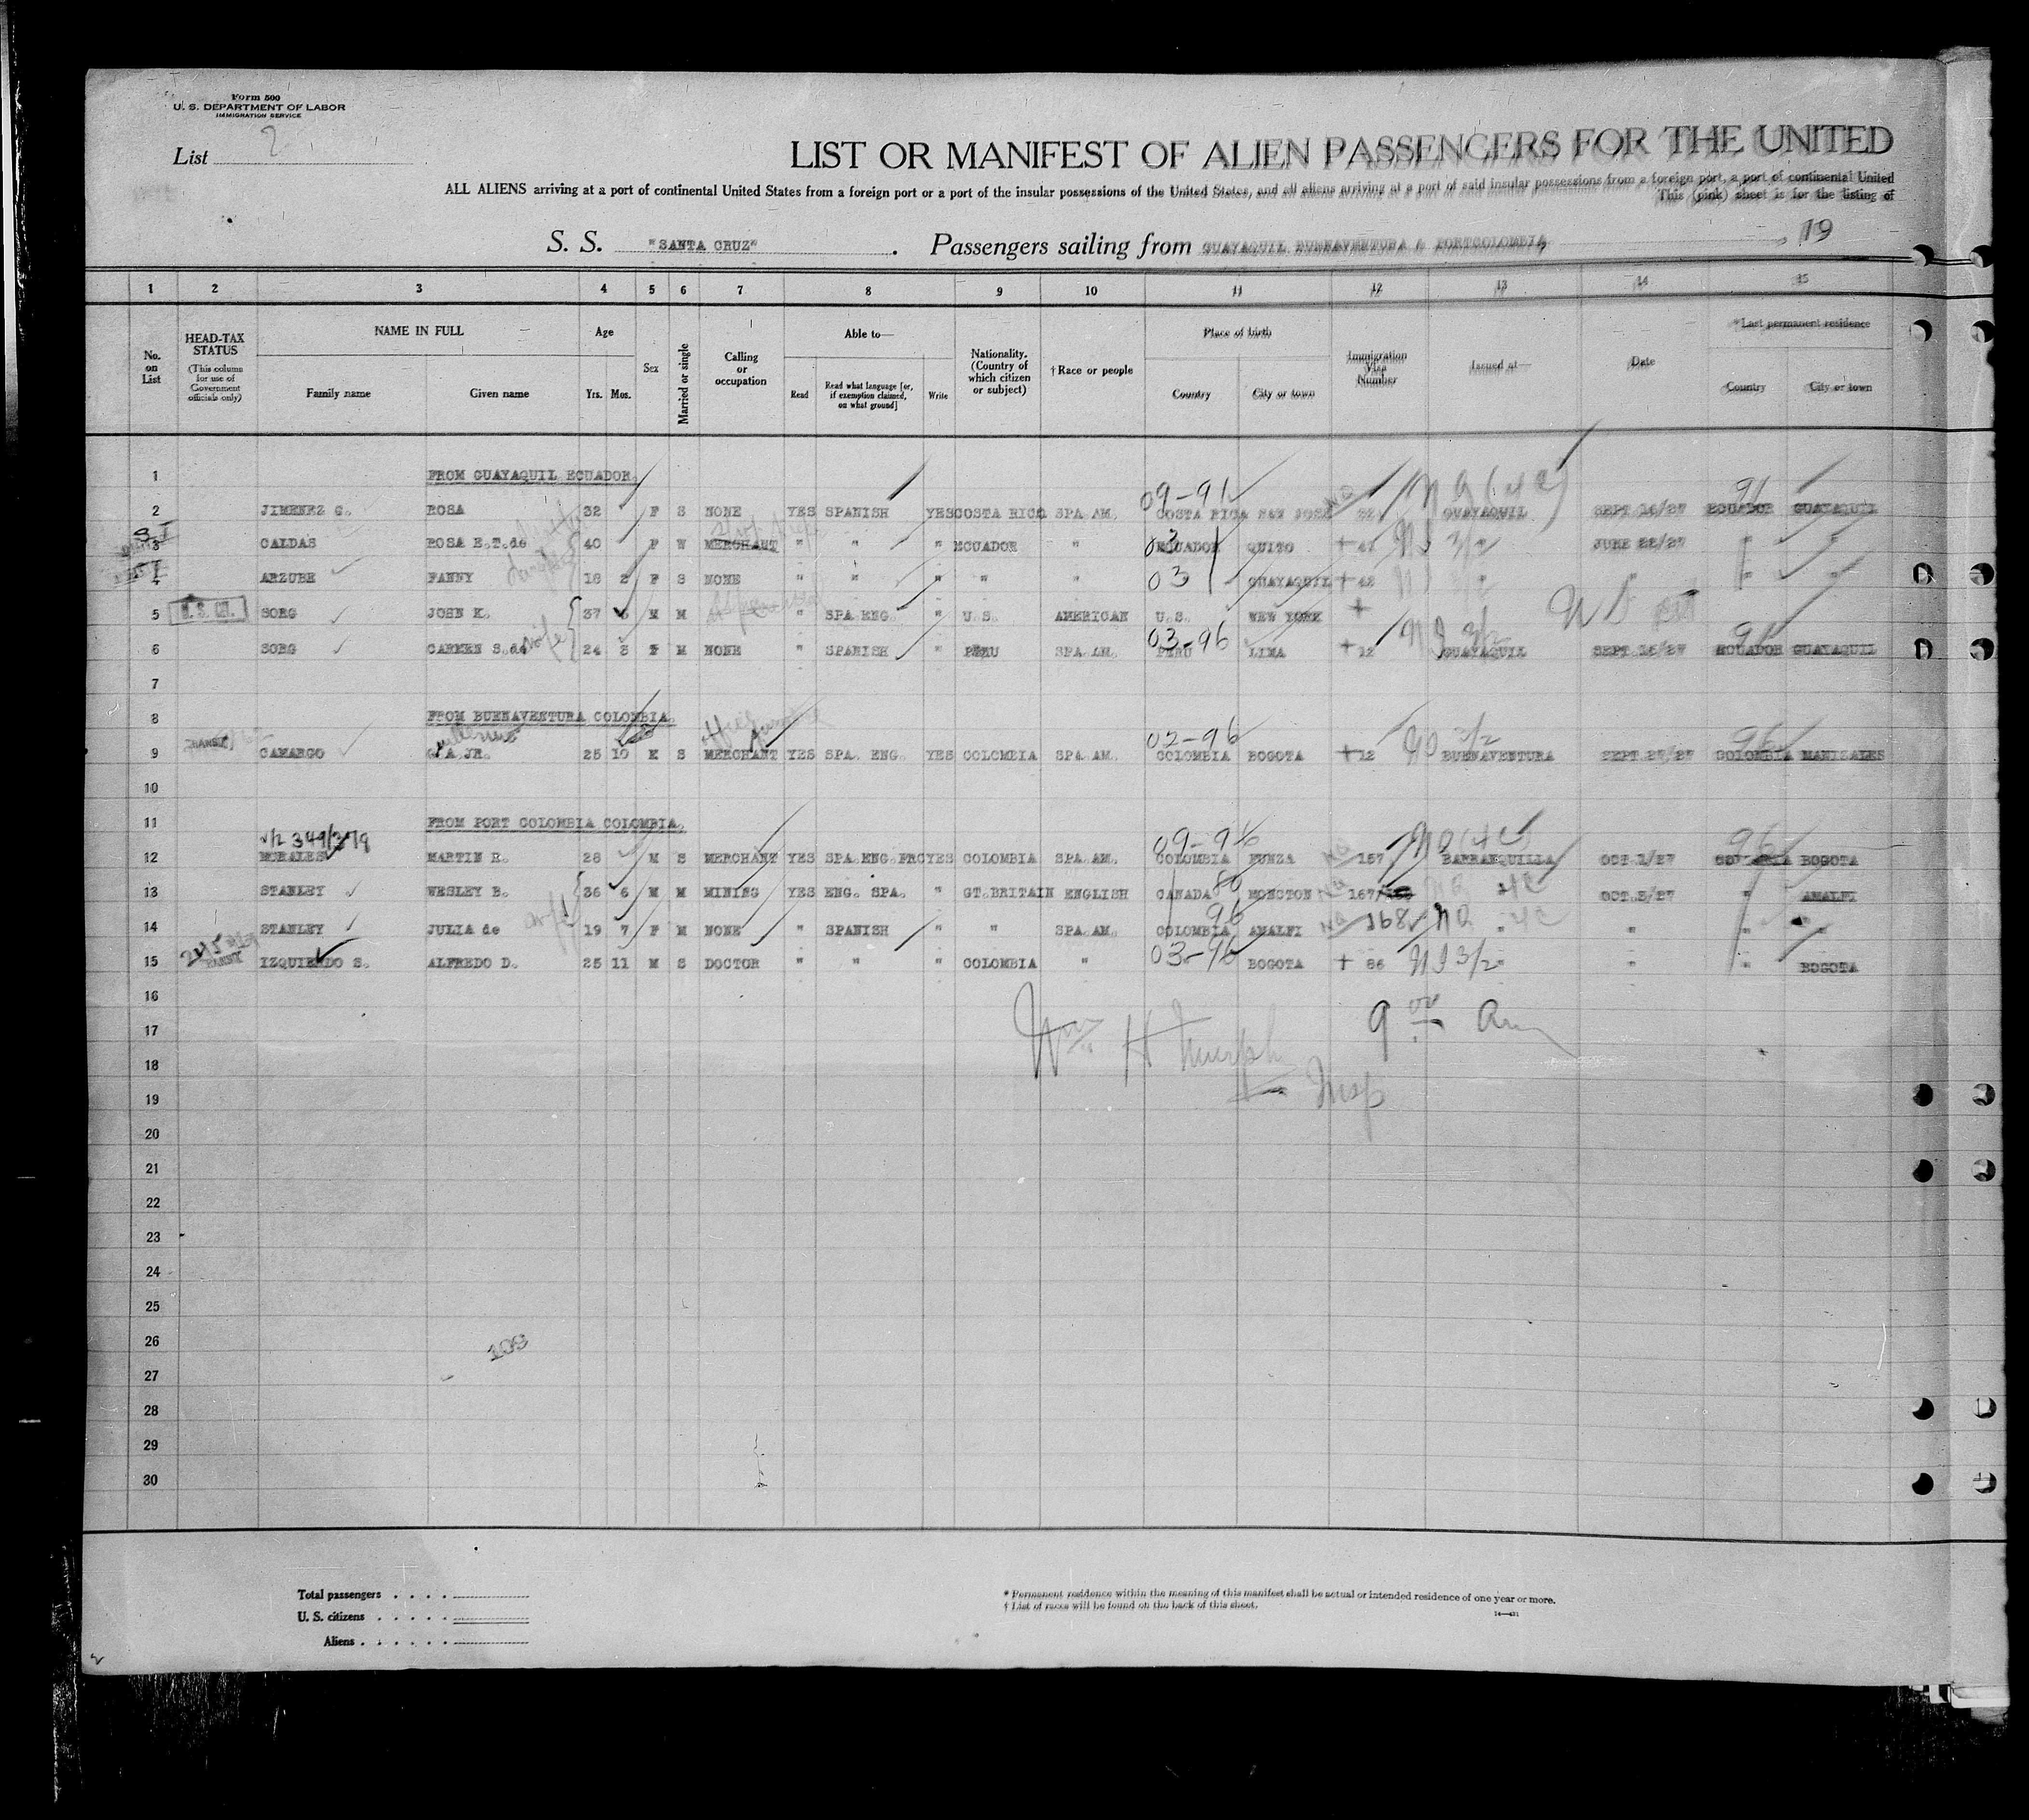 Form 500
U. S. DEPARTMENT OF LABOR
IMMIGRATION SERVICE
List 2
LIST OR MANIFEST OF ALIEN PASSENGERS FOR THE UNITED
ALL ALIENS arriving at a port of continental United States from a foreign port or a port of the insular possessions of the United States, and all aliens arriving at a port of said insular possessions from a foreign port, a port of continental United
This (pink) sheet is for the listing of
S. S. "SANTA CRUZ". Passengers sailing from GUAYAQUIL BUENAVENTURA & PORTCOLOMBIA, , 19
1 2 3 4 5 6 7 8 9 10 11 12 13 14 15
No. on List
HEAD-TAX STATUS (This column for use of Government officials only)
NAME IN FULL Family name Given name
Age Yrs. Mos.
Sex
Married or single
Calling or occupation
Able to— Read Read what language [or, if exemption claimed, on what ground] Write
Nationality. (Country of which citizen or subject)
†Race or people
Place of birth Country City or town
Immigration Visa Number
Issued at—
Date
*Last permanent residence Country City or town
1 FROM GUAYAQUIL ECUADOR.
09-91 91
2 JIMENEZ G. ROSA 32 F S NONE YES SPANISH YES COSTA RICA SPA.AM. COSTA RICA SAN JOSE 22 GUAYAQUIL SEPT.16/27 ECUADOR GUAYAQUIL
3 CALDAS ROSA E.T.de 40 F W MERCHANT " " " ECUADOR " ECUADOR QUITO 47 NI 3/2 " JUNE 22/27 " "
4 ARZUBE FANNY 18 2 F S NONE " " " " " 03 GUAYAQUIL 42 NI 3/2 " " "
5 U. S. CIT. SORG JOHN K. 37 M M " SPA.ENG. " U.S. AMERICAN U.S. NEW YORK
03-96 91
6 SORG CARMEN S.de wife 24 3 F M NONE " SPANISH " PERU SPA.AM. PERU LIMA 12 NI 3/2 GUAYAQUIL SEPT.16/27 ECUADOR GUAYAQUIL
7
8 FROM BUENAVENTURA COLOMBIA.
02-96 96
9 TRANSIT CAMARGO G.A.JR. 25 10 M S MERCHANT YES SPA. ENG. YES COLOMBIA SPA.AM. COLOMBIA BOGOTA 12 3/2 BUENAVENTURA SEPT.27/27 COLOMBIA MANIZALES
10
11 FROM PORT COLOMBIA COLOMBIA.
349/379 09-96 96
12 MORALES MARTIN R. 28 M S MERCHANT YES SPA.ENG.FRC YES COLOMBIA SPA.AM. COLOMBIA FUNZA 157 BARRANQUILLA OCT.1/27 BOGOTA
13 STANLEY WESLEY B. 36 6 M M MINING YES ENG. SPA. " GT.BRITAIN ENGLISH CANADA MONCTON 167 OCT.5/27 " AMALFI
14 STANLEY JULIA de wife 19 7 F M NONE " SPANISH " " SPA.AM. COLOMBIA AMALFI 168 " " " "
15 IZQUIERDO S. ALFREDO D. 25 11 M S DOCTOR " " " COLOMBIA " 03-96 BOGOTA 86 NI 3/2 " " " BOGOTA
16
17
Wm H Murphy
Insp
18
19
20
21
22
23
24
25
26
109
27
28
29
30
Total passengers
U. S. citizens
Aliens
* Permanent residence within the meaning of this manifest shall be actual or intended residence of one year or more.
† List of races will be found on the back of this sheet.